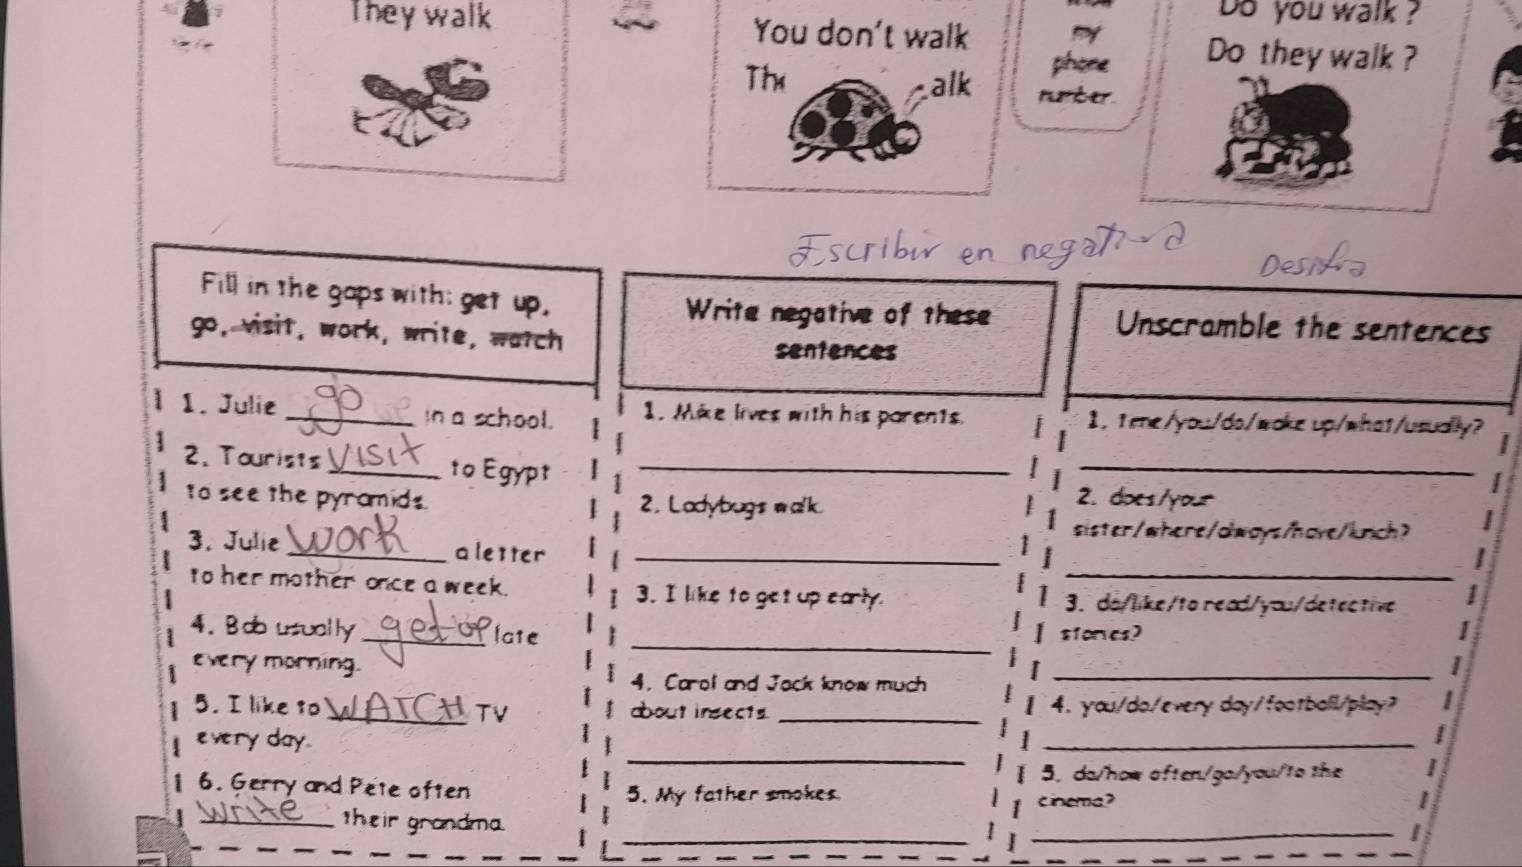 They walk
You don't walk
alk
my
phone
number.
Do you walk?
Do they walk?
Escribir en negativa
Fill in the gaps with: get up,
go, visit, work, write, watch
1. Julie go in a school.
2. Tourists visit to Egypt
to see the pyramids.
3. Julie work a letter
to her mother once a week.
4. Bob usually get up late
every morning.
5. I like to WATCH TV
every day.
6. Gerry and Pete often
write their grandma
Write negative of these
sentences
1. Mike lives with his parents.
2. Ladybugs walk.
3. I like to get up early.
4. Carol and Jack know much
about insects.
5. My father smokes.
Unscramble the sentences
1. time/you/do/wake up/what/usually?
2. does/your
sister/where/always/have/lunch?
3. do/like/to read/you/detective
stories?
4. you/do/every day/football/play?
5. do/how often/go/you/to the
cinema?